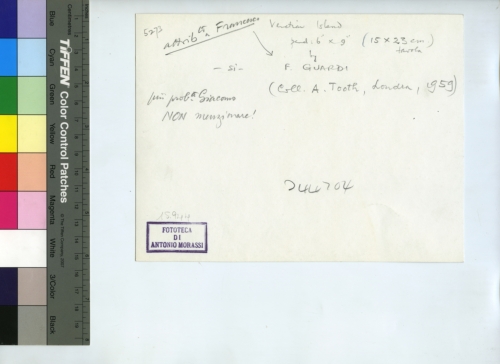 attrib. a Francesco
Venetian Island
6" x 9" (15 x 23 cm)
tavola
- si -
F. GUARDI
(Coll. A. Tooth, London, 1959)
più prob. Giacomo
NON menzionare!
744704
15944
FOTOTECA
DI
ANTONIO MORASSI
TIFFEN Color Control Patches
© The Tiffen Company, 2007
Centimetres
Blue
Cyan
Green
Yellow
Red
Magenta
White
3/Color
Black